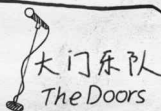 大门乐队
The Doors